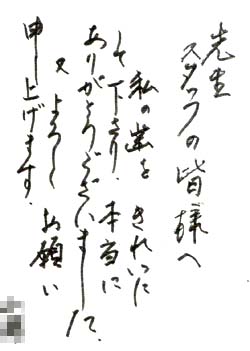 先生
スタッフの皆様へ
私の歯をきれいに
して下さり、本当に
ありがとうございました。
又よろしくお願い
申し上げます。